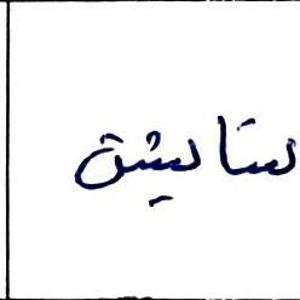 ستایش